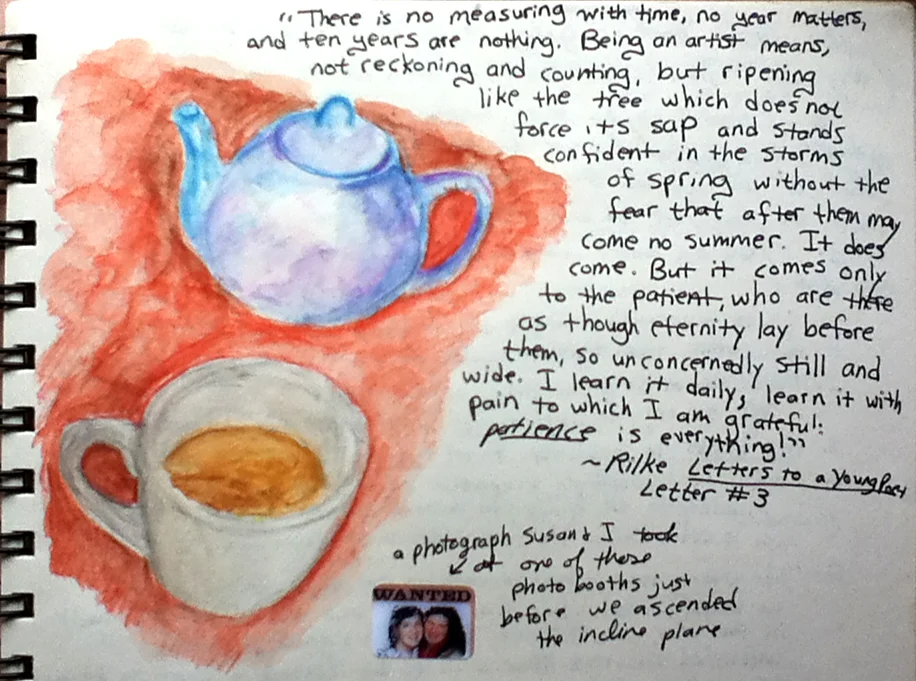 "There is no measuring with time, no year matters,
and ten years are nothing. Being an artist means,
not reckoning and counting, but ripening
like the tree which does not
force its sap and stands
confident in the storms
of spring without the
fear that after them may
come no summer. It does
come. But it comes only
to the patient, who are there
as though eternity lay before
them, so unconcernedly still and
wide. I learn it daily, learn it with
pain to which I am grateful:
patience is everything!"
~Rilke Letters to a Young Poet
Letter #3
a photograph Susan & I took
at one of those
photo booths just
before we ascended
the incline plane
WANTED